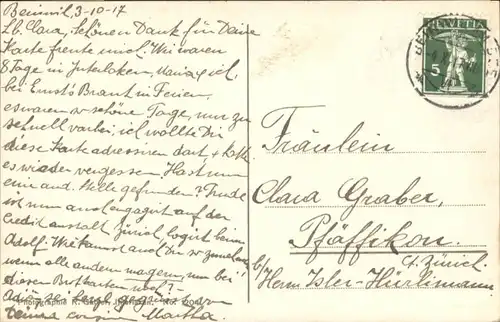 Beinwil, 3-10-17
Lb. Clara, Schönen Dank für Deine
Karte freute mich. Wir waren
8 Tage in Interlaken, Maria & ich,
bei Ernst's Braut in Ferien,
es waren schöne Tage, nur zu
schnell vorbei, ich wollte Dir
diese Karte adressieren dort, & hatte
es wieder vergessen. Hast nun
eine and. Stelle gefunden? Trude
ist nun auch engagirt auf der
Creditanstalt Zürich, logirt beim
Adolf. Wie kannst auch Du so zunehmen
wenn alle andern magern, nun bei
diesen Brotkarten noch?
Adr. herzl. gegr. von
Deiner Martha.
HELVETIA
5
Fräulein
Clara Graber,
Pfäffikon.
Ct. Zürich
b/ Herrn Isler-Hürlimann